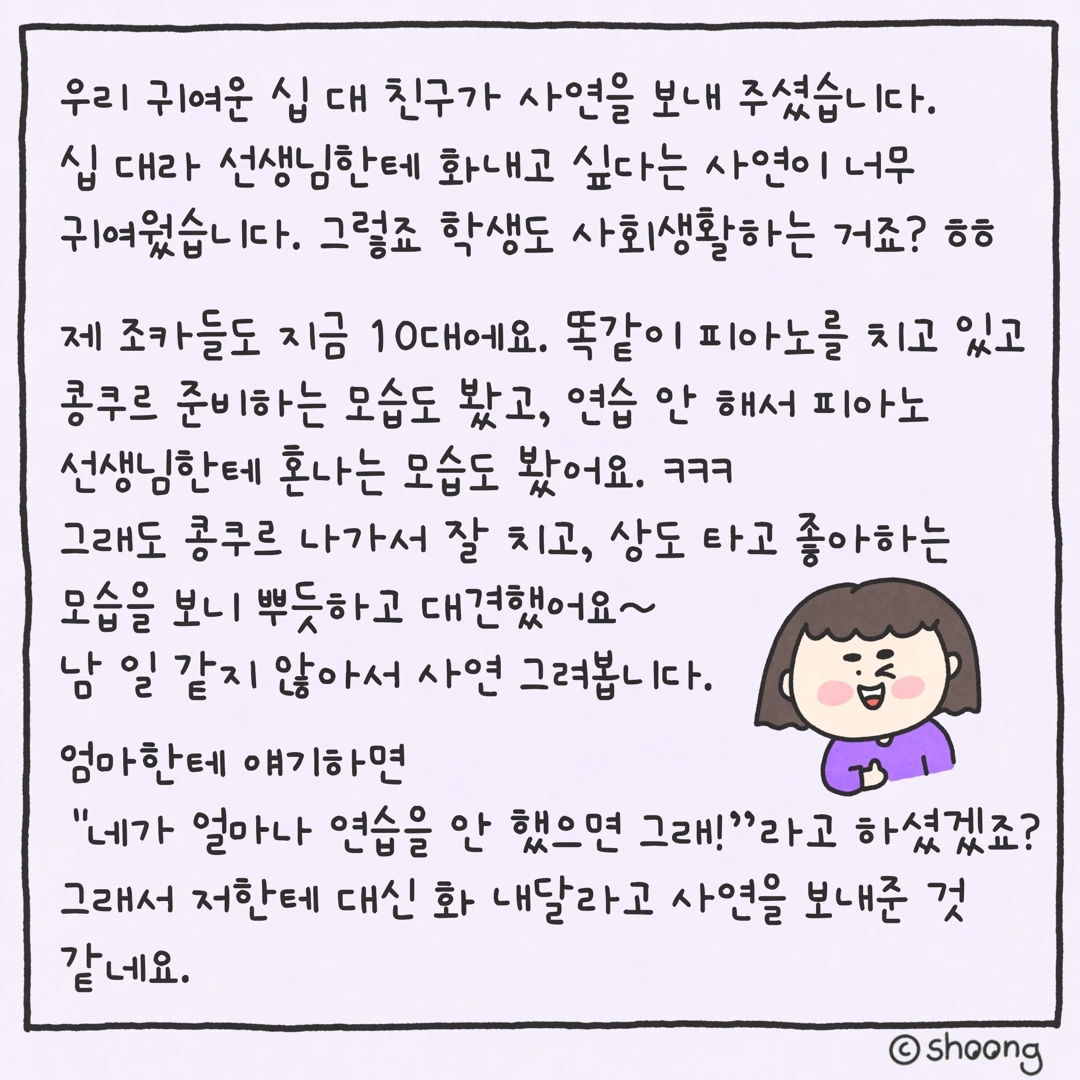 우리 귀여운 십 대 친구가 사연을 보내 주셨습니다.
십 대라 선생님한테 화내고 싶다는 사연이 너무
귀여웠습니다. 그렇죠 학생도 사회생활하는 거죠? ㅎㅎ
제 조카들도 지금 10대에요. 똑같이 피아노를 치고 있고
콩쿠르 준비하는 모습도 봤고, 연습 안 해서 피아노
선생님한테 혼나는 모습도 봤어요. ㅋㅋㅋ
그래도 콩쿠르 나가서 잘 치고, 상도 타고 좋아하는
모습을 보니 뿌듯하고 대견했어요~
남 일 같지 않아서 사연 그려봅니다.
엄마한테 얘기하면
"네가 얼마나 연습을 안 했으면 그래!"라고 하셨겠죠?
그래서 저한테 대신 화 내달라고 사연을 보내준 것
같네요.
©shoong